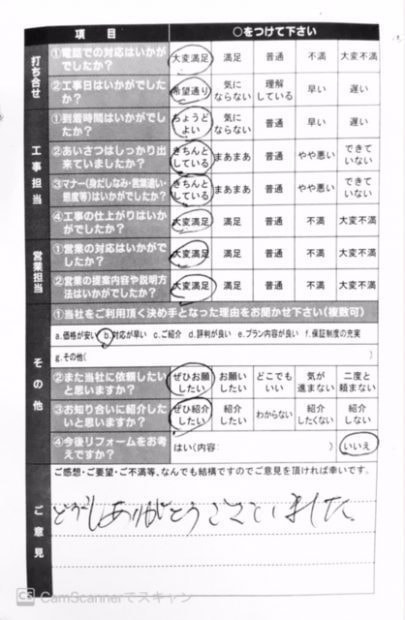 項目 ○をつけて下さい
打ち合せ
①電話での対応はいかがでしたか? 大変満足 満足 普通 不満 大変不満
②工事日はいかがでしたか? 希望通り 気にならない 理解している 早い 遅い
工事担当
①到着時間はいかがでしたか? ちょうどよい 気にならない 普通 早い 遅い
②あいさつはしっかり出来ていましたか? きちんとしている まあまあ 普通 やや悪い できていない
③マナー(身だしなみ・言葉遣い・態度等)はいかがでしたか? きちんとしている まあまあ 普通 やや悪い できていない
④工事の仕上がりはいかがでしたか? 大変満足 満足 普通 不満 大変不満
営業担当
①営業の対応はいかがでしたか? 大変満足 満足 普通 不満 大変不満
②営業の提案内容や説明方法はいかがでしたか? 大変満足 満足 普通 不満 大変不満
その他
①当社をご利用頂く決め手となった理由をお聞かせ下さい(複数可)
a.価格が安い b.対応が早い c.ご紹介 d.評判が良い e.プラン内容が良い f.保証制度の充実
g.その他( )
②また当社に依頼したいと思いますか? ぜひお願したい お願いしたい どこでもいい 気が進まない 二度と頼まない
③お知り合いに紹介したいと思いますか? ぜひ紹介したい 紹介したい わからない 紹介したくない 紹介しない
④今後リフォームをお考えですか? はい(内容: ) いいえ
ご意見
ご感想・ご要望・ご不満等、なんでも結構ですのでご意見を頂ければ幸いです。
どうもありがとうございました
CS CamScannerでスキャン